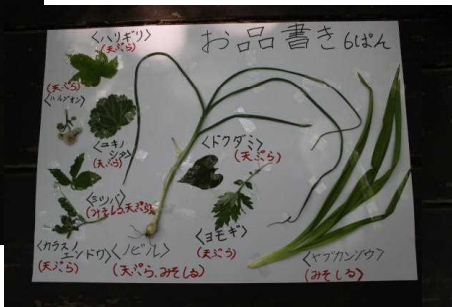 お品書き 6ぱん
〈ハリギリ〉
(天ぷら)
(天ぷら)
〈ハルジオン〉
〈ユキノ
シタ〉
(天ぷら)
〈ドクダミ〉
(天ぷら)
〈ミツバ〉
(みそしる、天ぷら)
〈カラスノ
エンドウ〉
(天ぷら)
〈ノビル〉
(天ぷら、みそしる)
〈ヨモギ〉
(天ぷら)
〈ヤブカンゾウ〉
(みそしる)